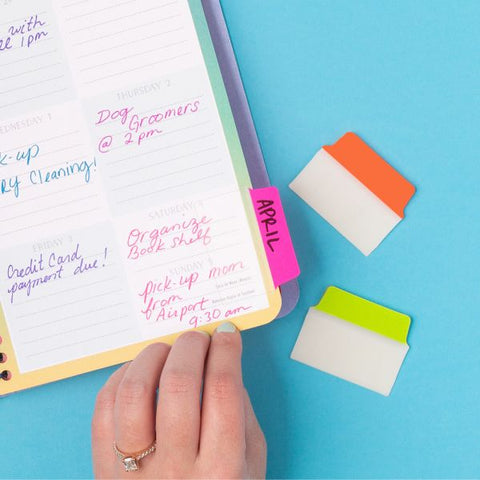 with
1pm
THURSDAY 2
Dog
Groomers
@ 2pm
WEDNESDAY 1
ck-up
RY Cleaning!
SATURDAY 4
Organize
Book shelf
FRIDAY 3
Credit Card
payment due!
SUNDAY 5
pick-up mom
from
Airport
9:30 am
APRIL